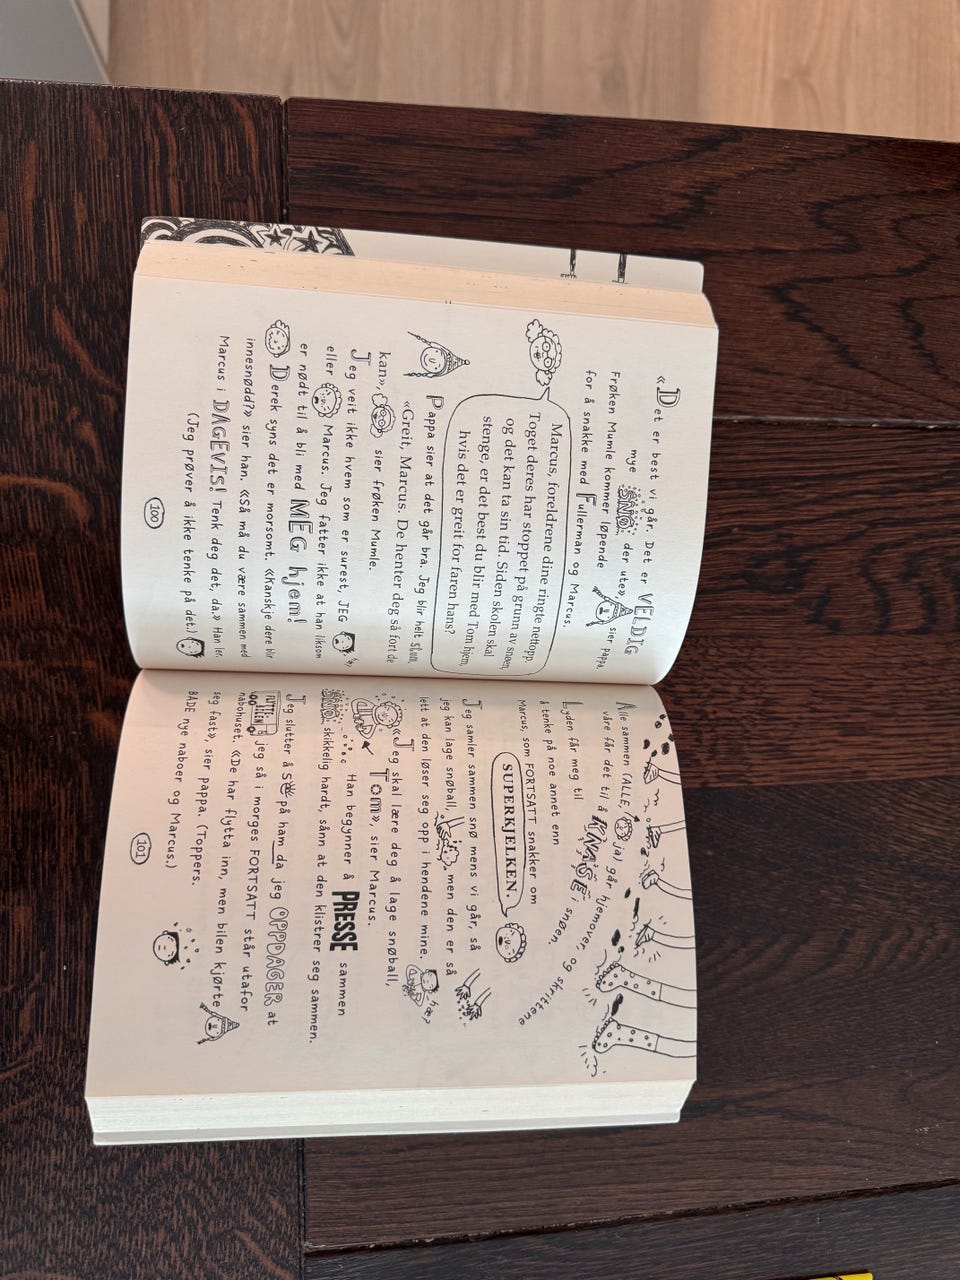 «Det er best vi går. Det er VELDIG
mye SNØ der ute», sier pappa.
Frøken Mumle kommer løpende
for å snakke med Fullerman og Marcus.
Marcus, foreldrene dine ringte nettopp.
Toget deres har stoppet på grunn av snøen,
og det kan ta sin tid. Siden skolen skal
stenge, er det best du blir med Tom hjem,
hvis det er greit for faren hans?
Pappa sier at det går bra. Jeg blir helt stum.
«Greit, Marcus. De henter deg så fort de
kan», sier frøken Mumle.
Jeg veit ikke hvem som er surest, JEG
eller Marcus. Jeg fatter ikke at han liksom
er nødt til å bli med MEG hjem!
Derek syns det er morsomt. «Kanskje dere blir
innesnødd?» sier han. «Så må du være sammen med
Marcus i DAGEVIS! Tenk deg det, da.» Han ler.
(Jeg prøver å ikke tenke på det.)
100
Alle sammen (ALLE, ja) går hjemover, og skrittene
våre får det til å KNASE i snøen.
Lyden får meg til
å tenke på noe annet enn
Marcus, som FORTSATT snakker om
SUPERKJELKEN.
Jeg samler sammen snø mens vi går, så
jeg kan lage snøball, men den er så
lett at den løser seg opp i hendene mine.
hæ?
«Jeg skal lære deg å lage snøball,
Tom», sier Marcus.
Han begynner å PRESSE sammen
SNØ skikkelig hardt, sånn at den klistrer seg sammen.
Jeg slutter å se på ham da jeg OPPDAGER at
FLYTTEBILEN jeg så i morges FORTSATT står utafor
nabohuset. «De har flytta inn, men bilen kjørte
seg fast», sier pappa. (Toppers.
BÅDE nye naboer og Marcus.)
101